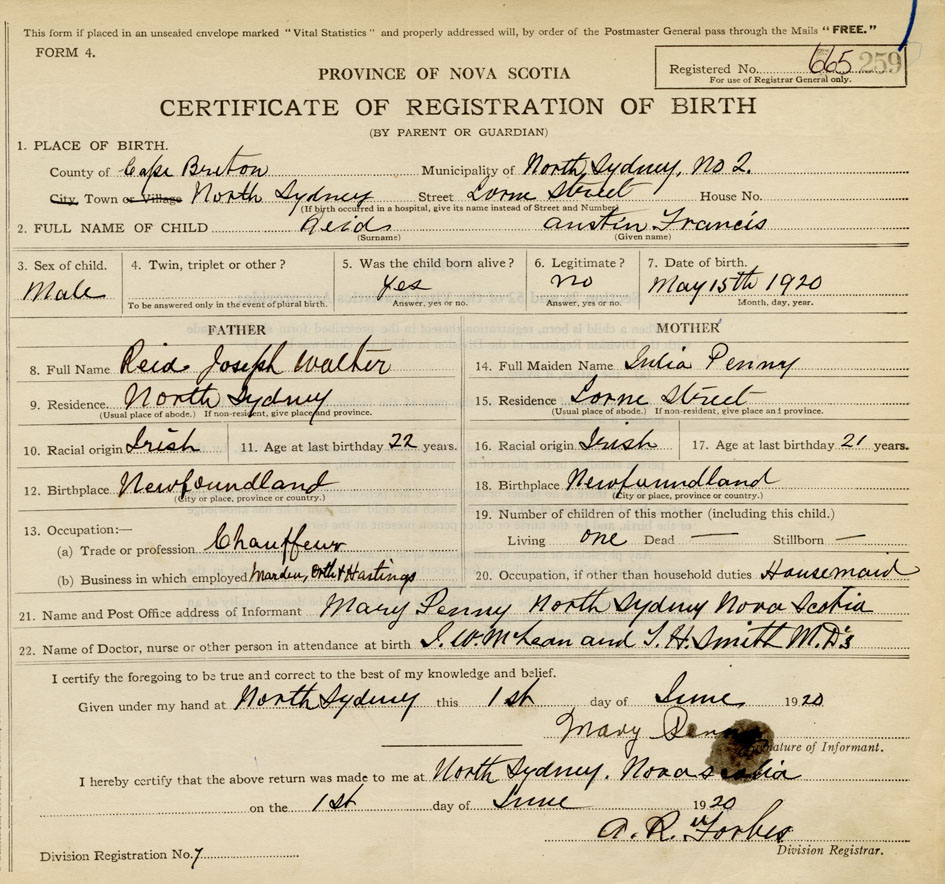 This form if placed in an unsealed envelope marked "Vital Statistics" and properly addressed will, by order of the Postmaster General pass through the Mails "FREE."
FORM 4.
Registered No. 665 259
For use of Registrar General only.
PROVINCE OF NOVA SCOTIA
CERTIFICATE OF REGISTRATION OF BIRTH
(BY PARENT OR GUARDIAN)
1. PLACE OF BIRTH.
County of Cape Breton Municipality of North Sydney, No 2.
City, Town or Village North Sydney Street Lorne Street House No.
(If birth occurred in a hospital, give its name instead of Street and Number)
2. FULL NAME OF CHILD Reid Austin Francis
(Surname) (Given name)
3. Sex of child. 4. Twin, triplet or other? 5. Was the child born alive? 6. Legitimate? 7. Date of birth.
Male Yes No May 15th 1920
To be answered only in the event of plural birth. Answer, yes or no. Answer, yes or no. Month, day, year.
FATHER MOTHER
8. Full Name Reid Joseph Walter 14. Full Maiden Name Julia Penny
9. Residence. North Sydney 15. Residence Lorne Street
(Usual place of abode.) If non-resident, give place and province. (Usual place of abode.) If non-resident, give place and province.
10. Racial origin Irish 11. Age at last birthday 22 years. 16. Racial origin Irish 17. Age at last birthday 21 years.
12. Birthplace Newfoundland 18. Birthplace Newfoundland
(City or place, province or country.) (City or place, province or country.)
13. Occupation:— 19. Number of children of this mother (including this child.)
(a) Trade or profession Chauffeur Living one Dead — Stillborn —
(b) Business in which employed Marden, Orth & Hastings 20. Occupation, if other than household duties Housemaid
21. Name and Post Office address of Informant Mary Penny North Sydney Nova Scotia
22. Name of Doctor, nurse or other person in attendance at birth J. W. McLean and T. H. Smith M.D's
I certify the foregoing to be true and correct to the best of my knowledge and belief.
Given under my hand at North Sydney this 1st day of June 1920
Mary Penny
Signature of Informant.
I hereby certify that the above return was made to me at North Sydney. Nova Scotia
on the 1st day of June 1920
A. R. Forbes
Division Registration No. 7 Division Registrar.